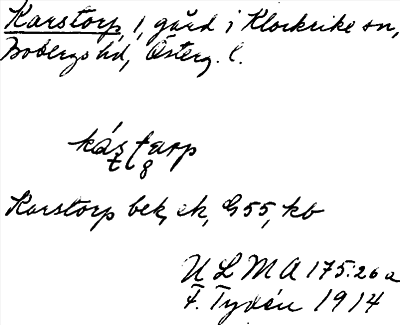 Karstorp, 1, gård i Klockrike sn,
Bobergs hd, Österg. l.
kástarp
Karstorp bek, ek, G 55, kb
ULMA 175:26a
F. Tydén 1914